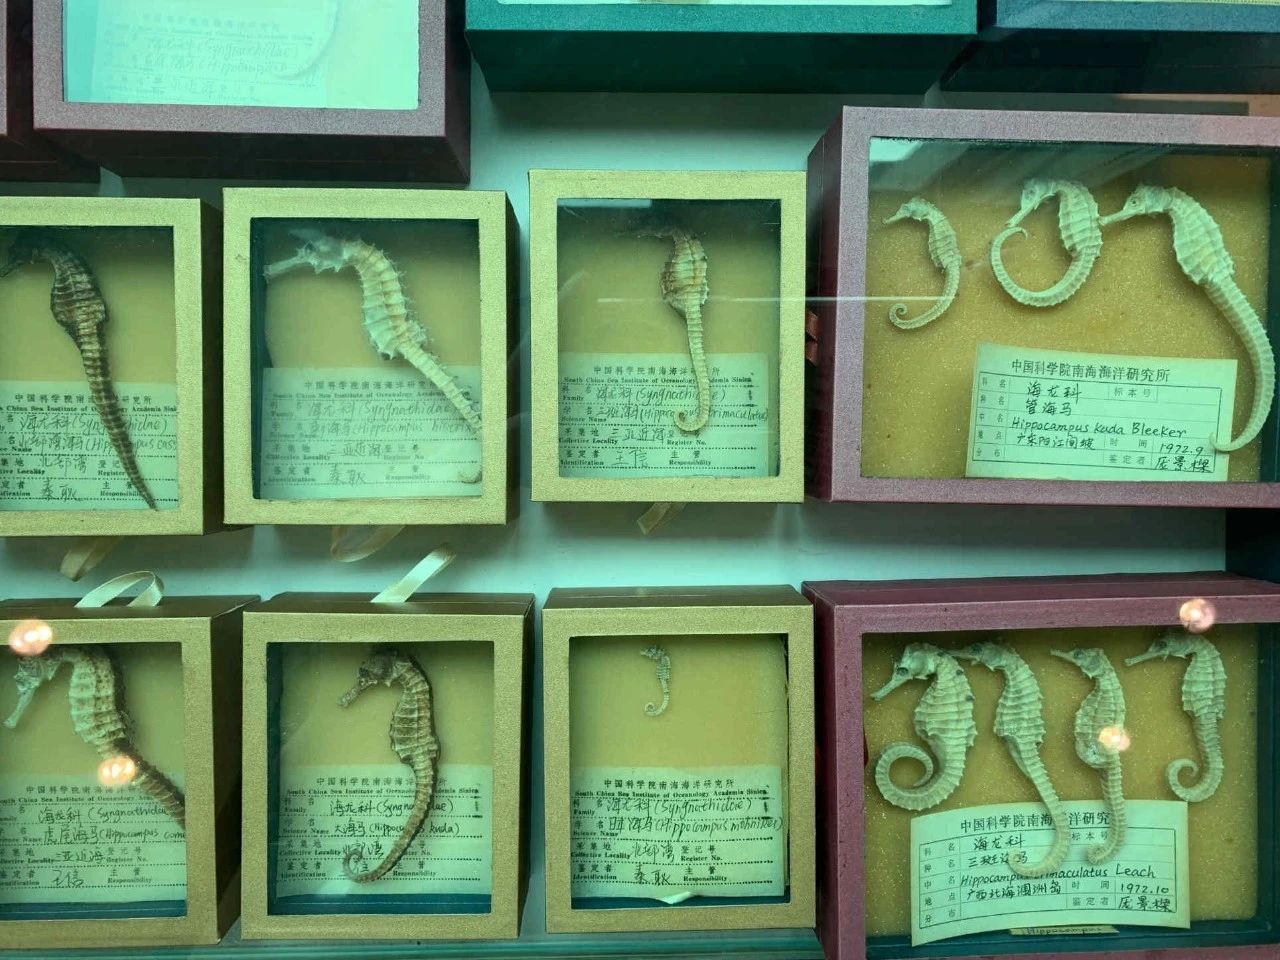 海龙科(Syngnathidae)
中国科学院南海海洋研究所
South China Sea Institute of Oceanology Academia Sinica
Family
海龙科(Syngnathidae)
Science Name
Collective Locality 北部湾 Register
Identification 秦耿 Responsibility
中国科学院南海海洋研究所
South China Sea Institute of Oceanology Academia Sinica
科名 Family 海龙科(Syngnathidae)
Science Name
采集地 Collective Locality 三亚近海 登记号 Register No.
鉴定者 Identification 秦耿 主管 Responsibility
中国科学院南海海洋研究所
South China Sea Institute of Oceanology Academia Sinica
科名 Family 海龙科(Syngnathidae)
学名 Science Name 三斑海马(Hippocampus trimaculatus)
采集地 Collective Locality 三亚近海 登记号 Register No.
鉴定者 Identification 王信 主管 Responsibility
中国科学院南海海洋研究所
科名 海龙科 标本号
种名 管海马
中名 Hippocampus kuda Bleeker
地点 广东阳江闸坡 时间 1972.9
分布 鉴定者 庞景樑
海龙科(Syngnathidae)
虎尾海马(Hippocampus come
Collective Locality 三亚近海 登记号 Register No.
Identification 王信 主管 Responsibility
中国科学院南海海洋研究所
South China Sea Institute of Oceanology Academia Sinica
科名 Family 海龙科(Syngnathidae)
学名 Science Name 大海马(Hippocampus kuda)
采集地 Collective Locality 北部湾 登记号 Register No.
鉴定者 Identification 主管 Responsibility
中国科学院南海海洋研究所
South China Sea Institute of Oceanology Academia Sinica
科名 Family 海龙科(Syngnathidae)
学名 Science Name 日本海马(Hippocampus mohnikei)
采集地 Collective Locality 北部湾 登记号 Register No.
鉴定者 Identification 秦耿 主管 Responsibility
中国科学院南海海洋研究所
科名 海龙科 标本号
种名 三斑海马
中名 Hippocampus trimaculatus Leach
地点 广西北海涠洲岛 时间 1972.10
分布 鉴定者 庞景樑
Hippocampus